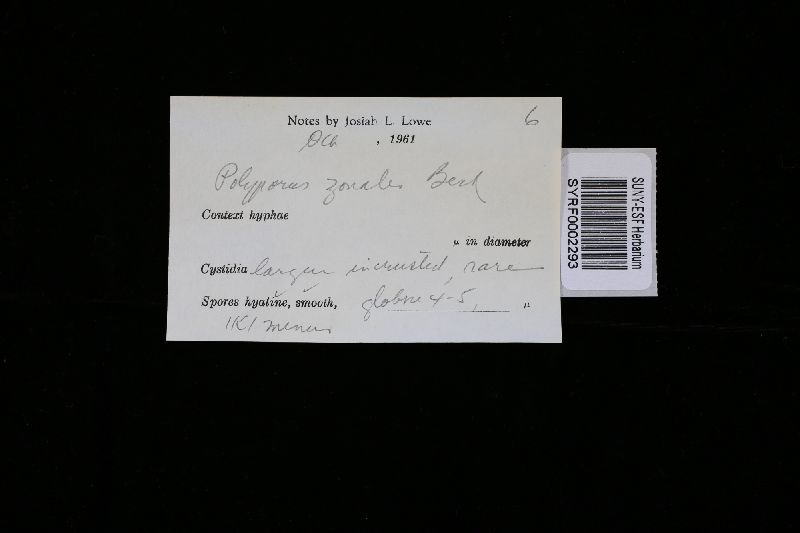 Notes by Josiah L. Lowe 6
Oct , 1961
Polyporus zonales Berk
Context hyphae
µ in diameter
Cystidia large, incrusted, rare
Spores hyaline, smooth, globose 4-5, µ
IKI minus
SUNY-ESF Herbarium
SYRF0002293